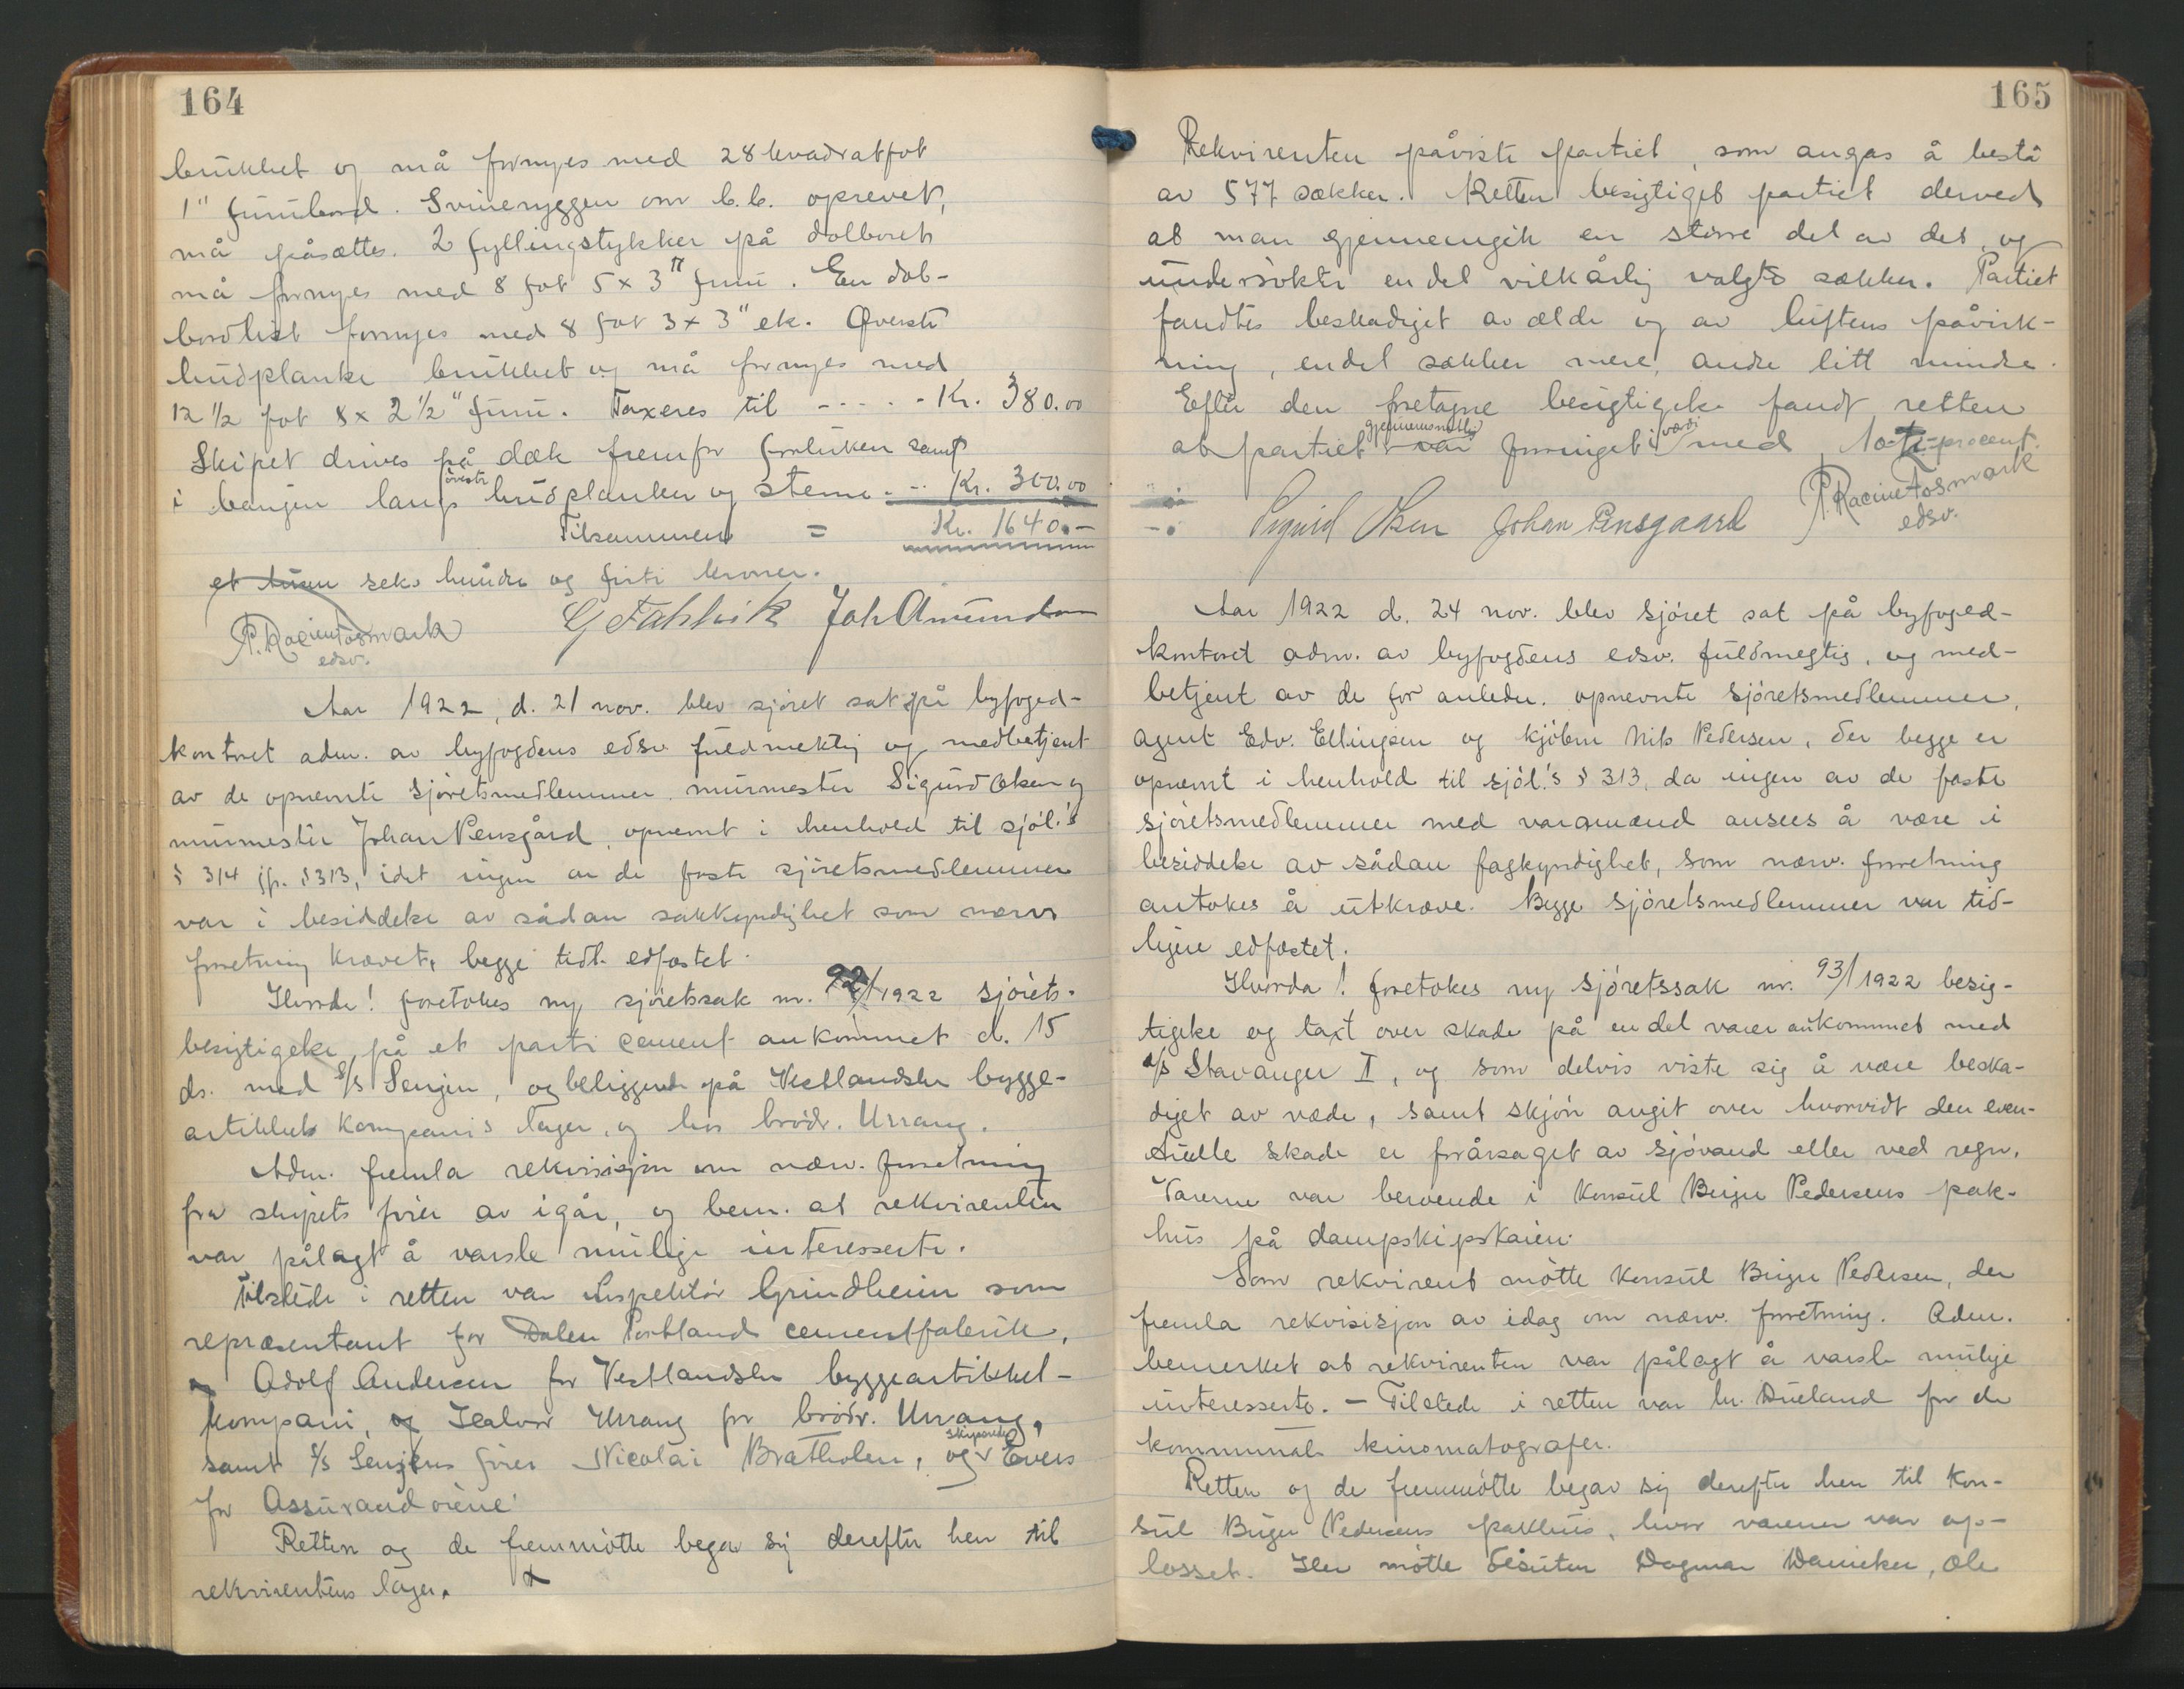 164
brukket og må fornyes med 28 kvadratfot
1" furubord. Svineryggen om b.b. oprevet,
må påsættes. 2 fyllingstykker på dolboret
må fornyes med 8 fot 5 x 3" furu. En dol-
bordlist fornyes med 8 fot 3 x 3" ek. Øverste
hudplanke brukket og må fornyes med
12 1/2 fot 8 x 2 1/2" furu. Taxeres til - - - - - Kr. 380.00
Skipet drives på dæk fremfor forluken samt
i baugen langs øverste hudplanker og stevne. - - Kr. 300.00
Tilsammen = Kr. 1640.-
et tusen seks hundre og firti kroner.
P. Racine Fosmark
edsv.
G Fahlvik Joh Amundsen
Aar 1922, d. 21 nov. blev sjöret sat på byfoged-
kontoret adm. av byfogdens edsv. fuldmektig og medbetjent
av de opnevnte sjöretsmedlemmer murmester Sigurd Olsen og
murmester Johan Pensgård, opnevnt i henhold til sjöl.'s
§ 314 jfr. § 313, idet ingen av de faste sjöretsmedlemmer
var i besiddelse av sådan sakkyndighet som nærv.
forretning krævet, begge tidl. edfæstet.
Hvorda! foretokes ny sjöretssak nr. 92/1922 sjörets-
besigtigelse på et parti cement ankommet d. 15
ds. med S/S Senjen, og beliggende på Vestlandske bygge-
artikkel kompanis lager, og hos brödr. Urrang.
Adm. fremla rekvisisjon om nærv. forretning
fra skipets förer av igår, og bem. at rekvirenten
var pålagt å varsle mulige interesserte.
Tilstede i retten var Inspektör Grindheim som
repræsentant for Dalen Portland cementfabrik,
Adolf Andersen for Vestlandske byggeartikkel-
kompani, og Halvor Urrang for brödr. Urrang,
samt S/S Senjens förer Nicolai Bratholm, og skipsreder Evers
for Assurandörene.
Retten og de fremmötte begav sig derefter hen til
rekvirentens lager.
165
Rekvirenten påviste partiet, som angas å bestå
av 577 sækker. Retten besigtiget partiet derved
at man gjennemgik en större del av det, og
undersökte en del vilkårlig valgte sækker. Partiet
fandtes beskadiget av ælde og av luftens påvirk-
ning, endel sækker mere, andre litt mindre.
Efter den foretagne besigtigelse fandt retten
at partiet gjennemsnitlig var forringet i værdi med 10-ti-procent.
Sigurd Olsen Johan Pensgaard
P. Racine Fosmark
edsv.
Aar 1922 d. 24 nov. blev sjöret sat på byfoged-
kontoret adm. av byfogdens edsv. fuldmegtig, og med-
betjent av de for anledn. opnevnte sjöretsmedlemmer,
agent Edv. Ellingsen og kjöbm Nils Pedersen, der begge er
opnevnt i henhold til sjöl.'s § 313, da ingen av de faste
sjöretsmedlemmer med varamænd ansees å være i
besiddelse av sådan fagkyndighet, som nærv. forretning
antokes å utkræve. Begge sjöretsmedlemmer var tid-
ligere edfæstet.
Hvorda! foretokes ny sjöretssak nr. 93/1922 besig-
tigelse og taxt over skade på en del varer ankommet med
d/s Stavanger I, og som delvis viste sig å være beska-
diget av væde, samt skjön angit over hvorvidt den even-
tuelle skade er forårsaget av sjövand eller ved regn.
Varerne var beroende i Konsul Birger Pedersens pak-
hus på dampskipskaien.
Som rekvirent mötte Konsul Birger Pedersen, der
fremla rekvisisjon av idag om nærv. forretning. Adm.
bemerket at rekvirenten var pålagt å varsle mulige
interesserte. - Tilstede i retten var hr. Dueland for de
kommunale kinematografer.
Retten og de fremmötte begav sig derefter hen til Kon-
sul Birger Pedersens pakhus, hvor varerne var op-
losset. Her mötte desuten Dagmar Danielsen, Ole